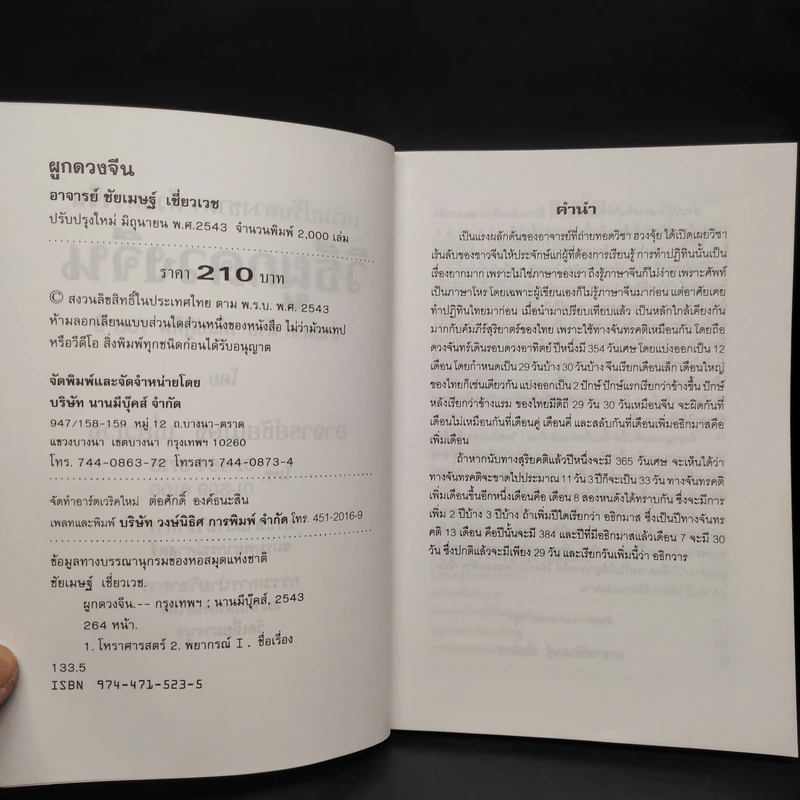 ผูกดวงจีน
อาจารย์ ชัยเมษฐ์ เชี่ยวเวช
ปรับปรุงใหม่ มิถุนายน พ.ศ.2543 จำนวนพิมพ์ 2,000 เล่ม
ราคา 210 บาท
© สงวนลิขสิทธิ์ในประเทศไทย ตาม พ.ร.บ. พ.ศ. 2543
ห้ามลอกเลียนแบบส่วนใดส่วนหนึ่งของหนังสือ ไม่ว่าม้วนเทป
หรือวีดีโอ สิ่งพิมพ์ทุกชนิดก่อนได้รับอนุญาต
จัดพิมพ์และจัดจำหน่ายโดย
บริษัท นานมีบุ๊คส์ จำกัด
947/158-159 หมู่ 12 ถ.บางนา-ตราด
แขวงบางนา เขตบางนา กรุงเทพฯ 10260
โทร. 744-0863-72 โทรสาร 744-0873-4
จัดทำอาร์ตเวริคใหม่ ต่อศักดิ์ องค์ธนะสิน
เพลทและพิมพ์ บริษัท วงษ์นิธิศ การพิมพ์ จำกัด โทร. 451-2016-9
ข้อมูลทางบรรณานุกรมของหอสมุดแห่งชาติ
ชัยเมษฐ์ เชี่ยวเวช.
ผูกดวงจีน.-- กรุงเทพฯ ; นานมีบุ๊คส์, 2543
264 หน้า.
1. โหราศาสตร์ 2. พยากรณ์ I. ชื่อเรื่อง
133.5
ISBN 974-471-523-5
คำนำ
เป็นแรงผลักดันของอาจารย์ที่ถ่ายทอดวิชา ฮวงจุ้ย ได้เปิดเผยวิชา
เร้นลับของชาวจีนให้ประจักษ์แก่ผู้ที่ต้องการเรียนรู้ การทำปฏิทินนั้นเป็น
เรื่องยากมาก เพราะไม่ใช่ภาษาของเรา ถึงรู้ภาษาจีนก็ไม่ง่าย เพราะศัพท์
เป็นภาษาโหร โดยเฉพาะผู้เขียนเองก็ไม่รู้ภาษาจีนมาก่อน แต่อาศัยเคย
ทำปฏิทินไทยมาก่อน เมื่อนำมาเปรียบเทียบแล้ว เป็นหลักใกล้เคียงกัน
มากกับคัมภีร์สุริยาตร์ของไทย เพราะใช้ทางจันทรคติเหมือนกัน โดยถือ
ดวงจันทร์เดินรอบดวงอาทิตย์ ปีหนึ่งมี 354 วันเศษ โดยแบ่งออกเป็น 12
เดือน โดยกำหนดเป็น 29 วันบ้าง 30 วันบ้าง จีนเรียกเดือนเล็ก เดือนใหญ่
ของไทยก็เช่นเดียวกัน แบ่งออกเป็น 2 ปักษ์ ปักษ์แรกเรียกว่าข้างขึ้น ปักษ์
หลังเรียกว่าข้างแรม ของไทยมีดิถี 29 วัน 30 วันเหมือนจีน จะผิดกันที่
เดือนไม่เหมือนกันที่เดือนคู่ เดือนคี่ และสลับกันที่เดือนเพิ่มอธิกมาสคือ
เพิ่มเดือน
ถ้าหากนับทางสุริยคติแล้วปีหนึ่งจะมี 365 วันเศษ จะเห็นได้ว่า
ทางจันทรคติจะขาดไปประมาณ 11 วัน 3 ปีก็จะเป็น 33 วัน ทางจันทรคติ
เพิ่มเดือนขึ้นอีกหนึ่งเดือนคือ เดือน 8 สองหนดังได้ทราบกัน ซึ่งจะมีการ
เพิ่ม 2 ปีบ้าง 3 ปีบ้าง ถ้าเพิ่มปีใดเรียกว่า อธิกมาส ซึ่งเป็นปีทางจันทร
คติ 13 เดือน คือปีนั้นจะมี 384 และปีที่มีอธิกมาสแล้วเดือน 7 จะมี 30
วัน ซึ่งปกติแล้วจะมีเพียง 29 วัน และเรียกวันเพิ่มนี้ว่า อธิกวาร